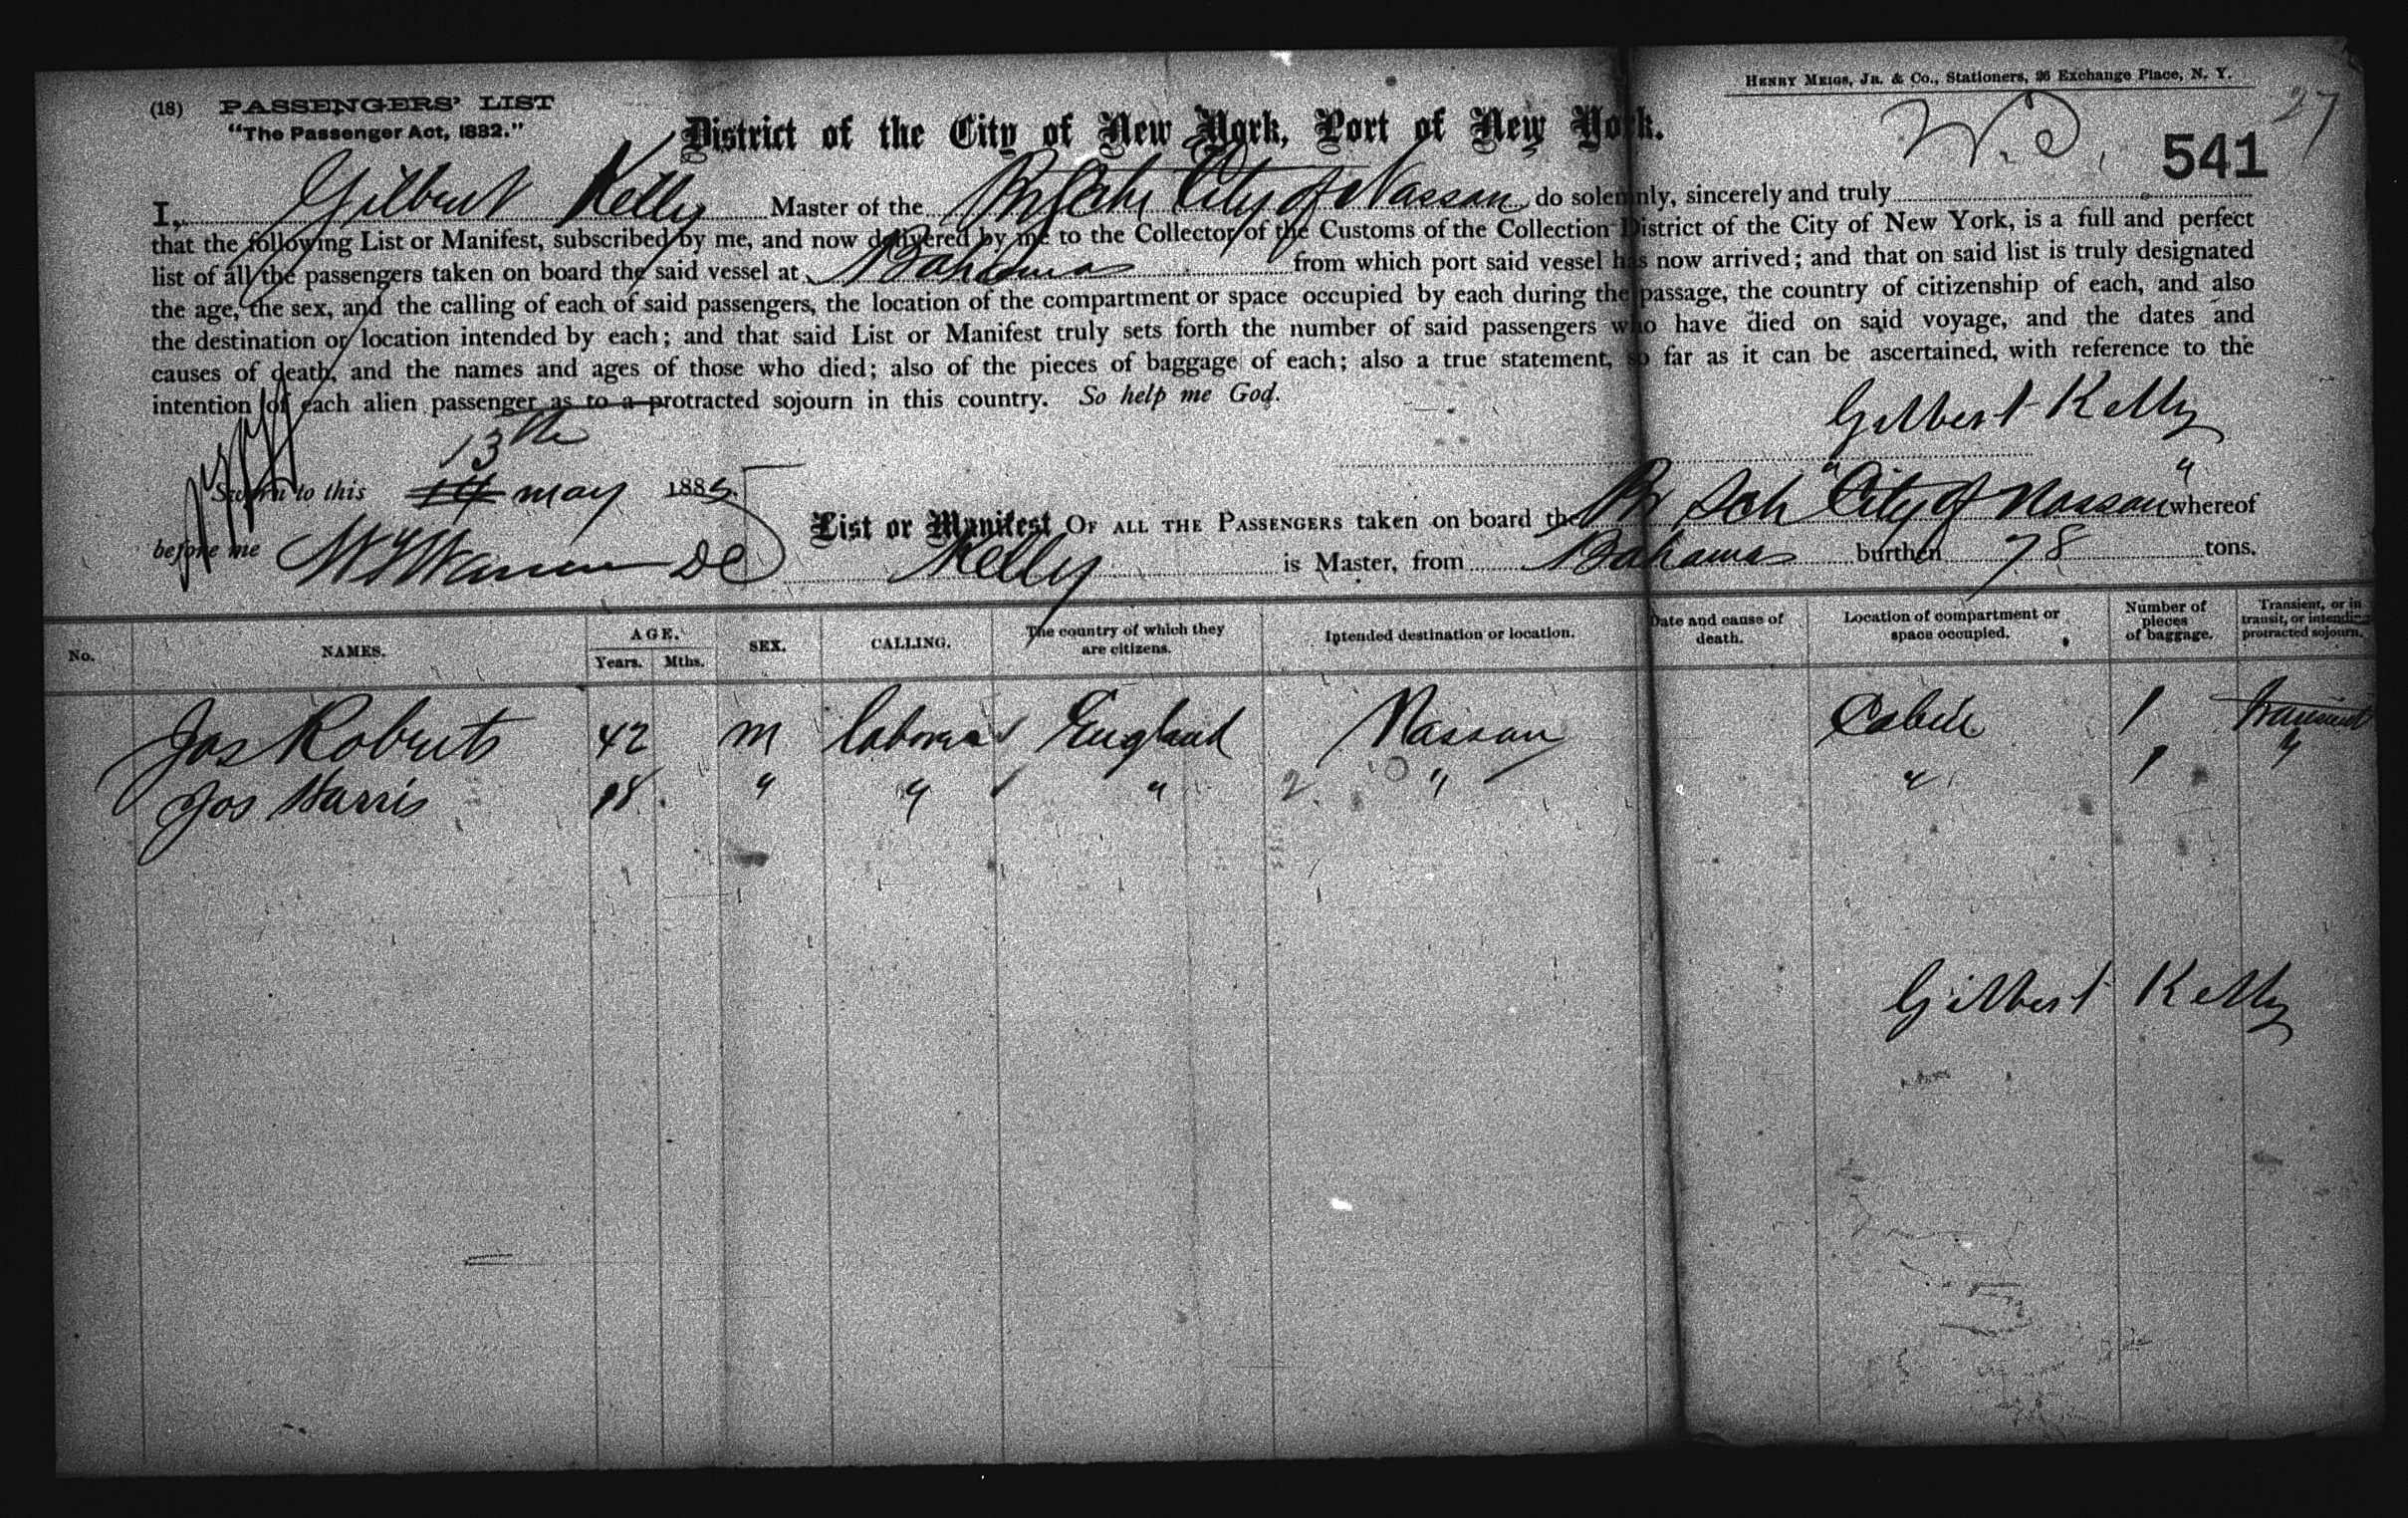 HENRY MEIGS, JR. & CO., Stationers, 26 Exchange Place, N. Y.
(18) PASSENGERS' LIST
"The Passenger Act, 1882."
27
District of the City of New York, Port of New York.
541
I, Gilbert Kelly Master of the Br Schr City of Nassau do solemnly, sincerely and truly
that the following List or Manifest, subscribed by me, and now delivered by me to the Collector of the Customs of the Collection District of the City of New York, is a full and perfect
list of all the passengers taken on board the said vessel at Bahama from which port said vessel has now arrived; and that on said list is truly designated
the age, the sex, and the calling of each of said passengers, the location of the compartment or space occupied by each during the passage, the country of citizenship of each, and also
the destination or location intended by each; and that said List or Manifest truly sets forth the number of said passengers who have died on said voyage, and the dates and
causes of death, and the names and ages of those who died; also of the pieces of baggage of each; also a true statement, so far as it can be ascertained, with reference to the
intention of each alien passenger as to a protracted sojourn in this country. So help me God.
Gilbert Kelly
13th
Sworn to this 14 may 1885
before me
List or Manifest OF ALL THE PASSENGERS taken on board the Br Sch "City of Nassau" whereof
Kelly is Master, from Bahamas burthen 78 tons.
No. NAMES. AGE. Years. Mths. SEX. CALLING. The country of which they are citizens. Intended destination or location. Date and cause of death. Location of compartment or space occupied. Number of pieces of baggage. Transient, or in transit, or intending protracted sojourn.
Jas Roberts 42 m laborer England Nassau Cabin 1 transient
Jos Harris 18 " " " 2 " " 1 "
Gilbert Kelly